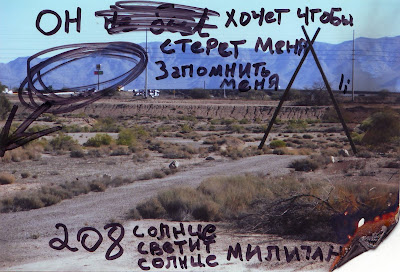 ОН ХОЧЕТ ЧТОБЫ
СТЕРЕТ МЕНЯ
ЗАПОМНИТЬ
МЕНЯ
208 СОЛНЦЕ
СВЕТИТ
СОЛНЦЕ